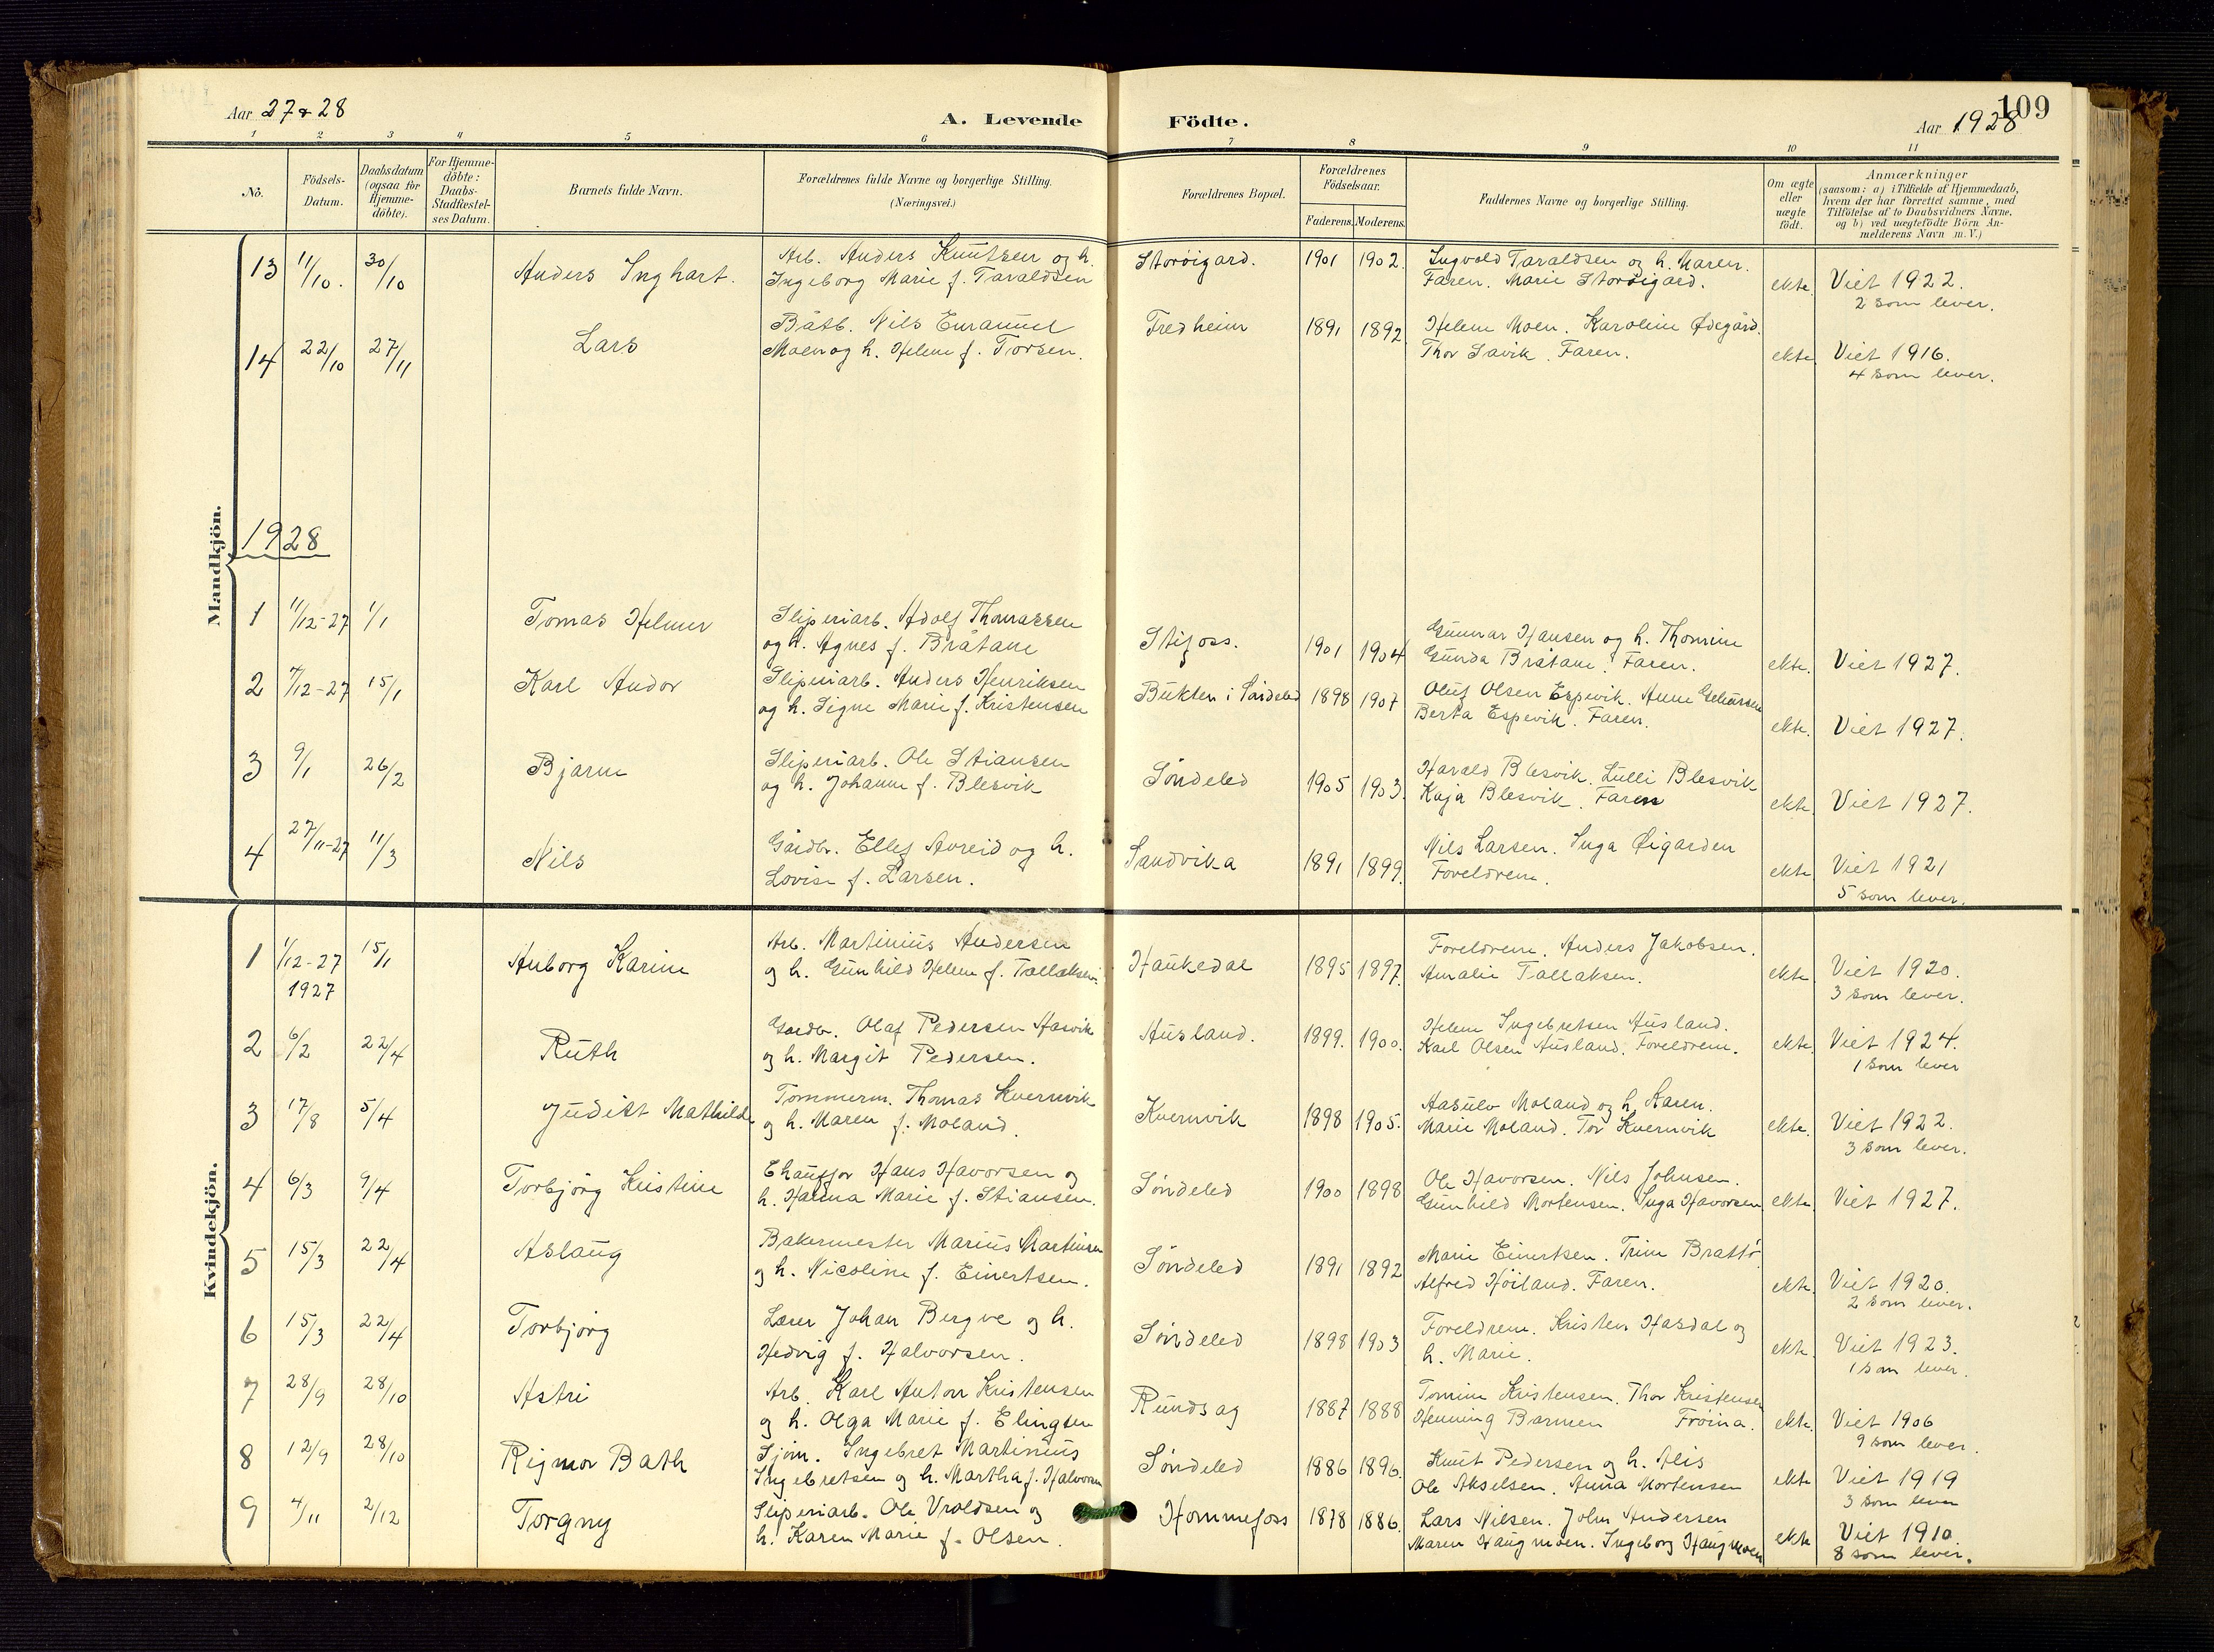 Aar 27 & 28
A. Levende Födte.
109
Aar 1928
1 2 3 4 5 6 7 8 9 10 11
No.
Födsels-Datum.
Daabsdatum (ogsaa for Hjemmedöbte).
For Hjemmedöbte: Daabs-Stadfæstelses Datum.
Barnets fulde Navn.
Forældrenes fulde Navne og borgerlige Stilling. (Næringsvei.)
Forældrenes Bopæl.
Forældrenes Födselsaar.
Faderens. Moderens.
Faddernes Navne og borgerlige Stilling.
Om ægte eller uægte födt.
Anmærkninger
(saasom: a) i Tilfælde af Hjemmedaab,
hvem der har forrettet samme, med
Tilföielse af to Daabsvidners Navne,
og b) ved uægtefödte Börn An-
melderens Navn m. V.)
Mandkjön.
13 11/10. 30/10 Anders Inghart. Arb. Anders Knutsen og h. Storöigard. 1901 1902. Ingvold Taraldsen og h. Maren.
Ingeborg Marie f. Taraldsen Faren. Marie Storöigard. ekte. Viet 1922.
2 som lever.
14 22/10 27/11 Lars Båtb. Nils Emanuel Fredheim 1891 1892 Helene Moen. Karoline Ødegård.
Moen og h. Helene f. Torsen. Thor Savik. Faren. ekte Viet 1916.
4 som lever.
1928
1 11/12-27 1/1 Tomas Helmer Sliperiarb. Adolf Thomassen Stifoss. 1901 1904 Gunnar Hansen og h. Thomine
og h. Agnes f. Bråtane Gunda Bråtane. Faren. ekte. Viet 1927.
2 7/12-27 15/1 Karl Andor Sliperiarb. Anders Henriksen Bukten i Söndeled 1898 1907 Oluf Olsen Espevik. Anne
og h. Signe Marie f. Kristensen Berta Espevik. Faren. ekte. Viet 1927.
3 9/1 26/2 Bjarne Sliperiarb. Ole Stiansen Söndeled 1905 1903. Harald Blesvik. Lulli Blesvik
og h. Johanne f. Blesvik Kaja Blesvik. Faren ekte. Viet 1927.
4 27/11-27 11/3 Nils Gårdbr. Ellef Avreid og h. Sandvika 1891 1899. Nils Larsen. Inga Øigarden
Lovise f. Larsen. Foreldrene. ekte Viet 1921
5 som lever.
Kvindekjön.
1 1/12-27 15/1 Anborg Karine Arb. Martinius Andersen Haukedal 1895 1897. Foreldrene. Anders Jakobsen.
1927 og h. Gunhild Helene f. Tallaksen. Amalie Tallaksen. ekte Viet 1920.
3 som lever.
2 6/2 22/4 Ruth Gardbr. Olaf Pedersen Hasvik Ausland. 1899. 1900. Helene Ingebretsen Ausland.
og h. Margit Pedersen. Karl Olsen Ausland. Foreldrene. ekte. Viet 1924.
1 som lever
3 17/8 5/4 Judikt Mathilde Tömmerm. Thomas Kvernvik Kvernvik 1898 1905. Aasulv Moland og h. Karen.
og h. Maren f. Moland. Marie Moland. Tor Kvernvik ekte. Viet 1922.
3 som lever.
4 6/3 9/4 Torbjörg Kristine Chauffør Hans Havorsen og Söndeled 1900 1898 Ole Havorsen. Nils Johnsen.
h. Hanna Marie f. Stiansen. Gunhild Mortensen. Inga Havorsen ekte. Viet 1927.
5 15/3 22/4 Aslaug Bakermester Marius Martinsen Söndeled 1891 1892 Marie Einertsen. Trine Brattö
og h. Nicoline f. Einertsen. Alfred Höiland. Faren. ekte. Viet 1920.
2 som lever.
6 15/3 22/4 Torbjörg Lærer Johan Bergve og h. Söndeled 1898 1903 Foreldrene. Kristen Hasdal og
Hedvig f. Halvorsen. h. Marie. ekte. Viet 1923.
1 som lever.
7 28/9 28/10 Astri Arb. Karl Anton Kristensen Rundsag 1887 1888 Tomine Kristensen. Thor Kristensen
og h. Olga Marie f. Elingsen Henning Barmen Fröina. ekte. Viet 1906
9 som lever.
8 12/9 28/10 Rigmor Bath Sjöm. Ingebret Martinius Söndeled 1886 1896. Knut Pedersen og h. Alis
Ingebretsen og h. Martha f. Halvorsen Ole Akselsen. Anna Mortensen ekte Viet 1919
3 som lever
9 4/11 2/12 Torgny Sliperiarb. Ole Vroldsen og Hommefoss 1878 1886. Lars Nilsen. John Andersen
h. Karen Marie f. Olsen. Maren Haugmoen. Ingeborg Haugmoen ekte Viet 1910
8 som lever.